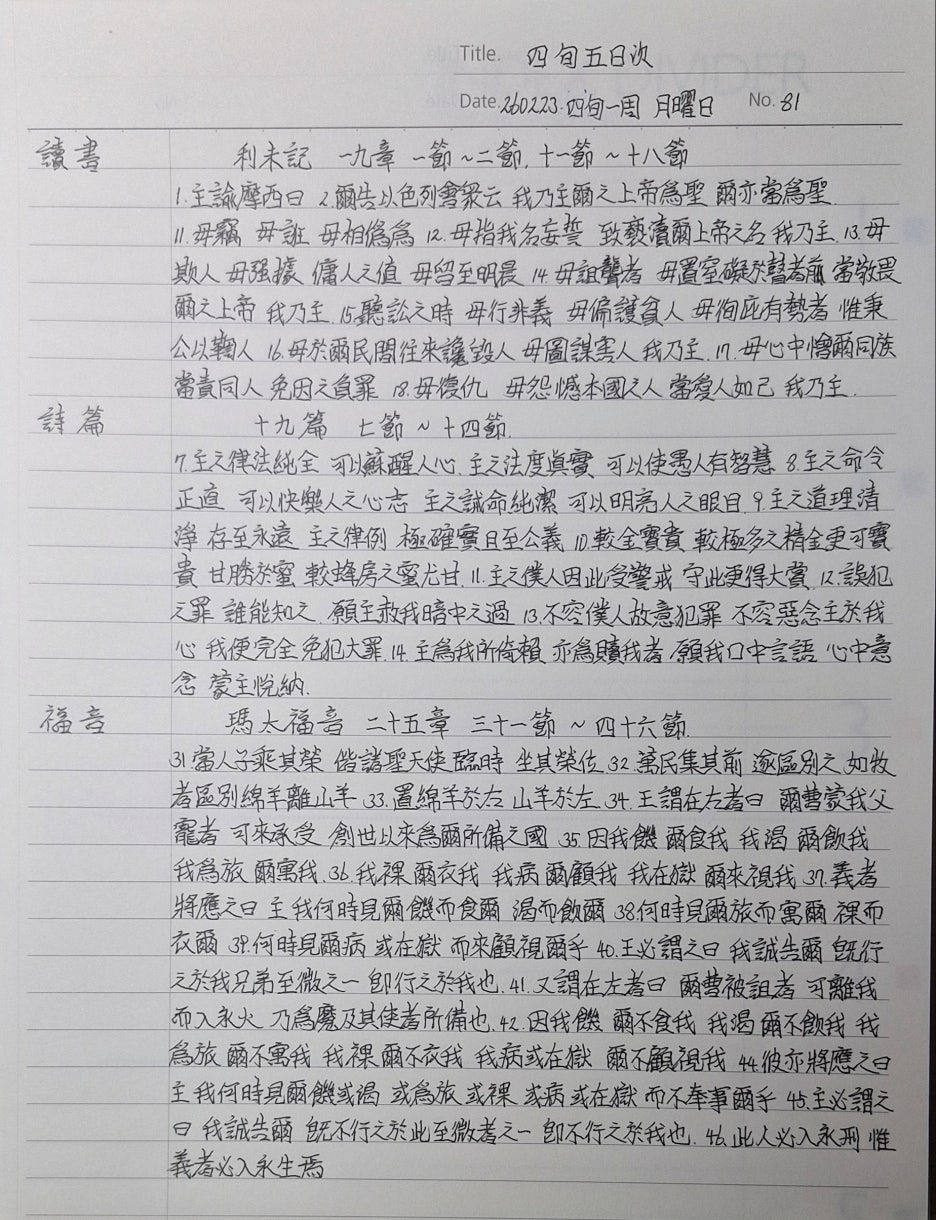 Title. 四旬五日次
Date. 260223. 四旬一周 月曜日 No. 81
讀書 利未記 一九章 一節 ~ 二節, 十一節 ~ 十八節
1. 主諭摩西曰 2. 爾告以色列會衆云 我乃主爾之上帝爲聖 爾亦當爲聖.
11. 毋竊 毋誑 毋相僞爲 12. 毋指我名妄誓 致褻瀆爾上帝之名 我乃主. 13. 毋
欺人 毋强據 傭人之值 毋留至明晨 14. 毋詛聾者 毋置窒礙於瞽者前 當敬畏
爾之上帝 我乃主. 15. 聽訟之時 毋行非義 毋偏護貧人 毋徇庇有勢者 惟秉
公以鞫人 16. 毋於爾民間往來讒毀人 毋圖謀害人 我乃主. 17. 毋心中憎爾同族
當責同人 免因之負罪 18. 毋復仇 毋怨憾本國之人 當愛人如己 我乃主.
詩篇 十九篇 七節 ~ 十四節.
7. 主之律法純全 可以蘇醒人心. 主之法度眞實 可以使愚人有智慧 8. 主之命令
正直 可以快樂人之心志 主之誡命純潔 可以明亮人之眼目. 9. 主之道理清
淨 存至永遠 主之律例 極確實且至公義 10. 較金寶貴 較極多之精金更可寶
貴 甘勝於蜜 較蜂房之蜜尤甘. 11. 主之僕人因此受警戒 守此更得大賞. 12. 誤犯
之罪 誰能知之. 願主赦我暗中之過 13. 不容僕人故意犯罪 不容惡念主於我
心 我便完全 免犯大罪. 14. 主爲我所倚賴 亦爲贖我者 願我口中言語 心中意
念 蒙主悅納.
福音 瑪太福音 二十五章 三十一節 ~ 四十六節.
31. 當人子乘其榮 偕諸聖天使臨時 坐其榮位. 32. 萬民集其前 遂區別之. 如牧
者區別綿羊離山羊 33. 置綿羊於右 山羊於左. 34. 王謂在右者曰 爾曹蒙我父
寵者 可來承受 創世以來爲爾所備之國 35. 因我饑 爾食我 我渴 爾飮我
我爲旅 爾寓我. 36. 我裸 爾衣我 我病 爾顧我 我在獄 爾來視我 37. 義者
將應之曰 主 我何時見爾饑而食爾 渴而飮爾 38. 何時見爾旅而寓爾 裸而
衣爾 39. 何時見爾病 或在獄 而來顧視爾乎 40. 王必謂之曰 我誠告爾 旣行
之於我兄弟至微之一 卽行之於我也. 41. 又謂在左者曰 爾曹被詛者 可離我
而入永火 乃爲魔及其使者所備也. 42. 因我饑 爾不食我 我渴 爾不飮我 我
爲旅 爾不寓我 我裸 爾不衣我 我病或在獄 爾不顧視我 44. 彼亦將應之曰
主 我何時見爾饑或渴 或爲旅 或裸 或病 或在獄 而不奉事爾乎 45. 主必謂之
曰 我誠告爾 旣不行之於此至微者之一 卽不行之於我也. 46. 此人必入永刑 惟
義者必入永生焉